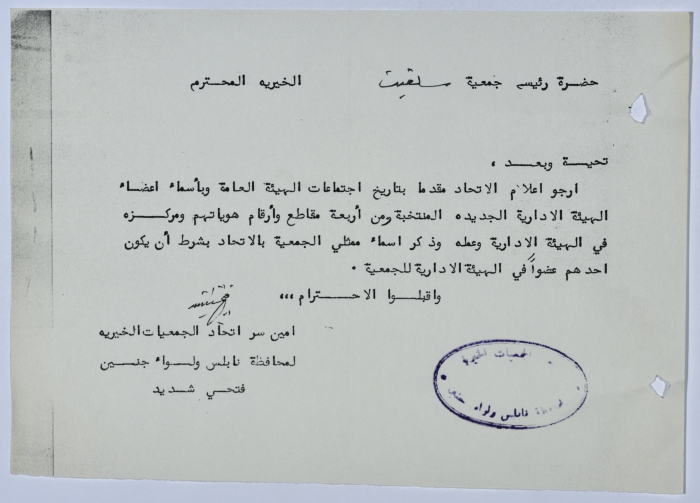 حضرة رئيسه جمعية سلفيت الخيريه المحترم
تحيية وبعد ،
ارجو اعلام الاتحاد مقدما بتاريخ اجتماعات الهيئة العامة وبأسماء اعضاء
الهيئة الادارية الجديده المنتخبة ومن أربعة مقاطع وأرقام هوياتهم ومركزه
في الهيئة الادارية وعمله وذكر اسماء ممثلي الجمعية بالاتحاد بشرط أن يكون
احدهم عضواً في الهيئة الادارية للجمعية .
واقبلوا الاحترام ،،،
امين سر اتحاد الجمعيات الخيريه
لمحافظة نابلس ولواء جنين
فتحي شديد
الجمعيات الخيرية
نابلس ولواء جنين